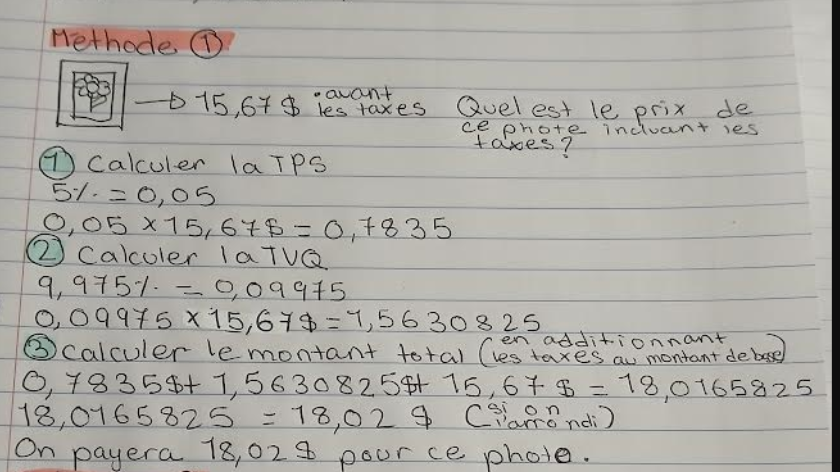 Methode ①
→ 15,67 $ • avant les taxes Quel est le prix de
ce phote incluant les
taxes?
① Calculer la TPS
5% = 0,05
0,05 × 15,67$ = 0,7835
② Calculer la TVQ
9,975% = 0,09975
0,09975 × 15,67$ = 1,5630825
③ Calculer le montant total (en additionnant les taxes au montant de base)
0,7835$ + 1,5630825$ + 15,67 $ = 18,0165825
18,0165825 = 18,02 $ (si on l'arrondi)
On payera 18,02$ pour ce photo.